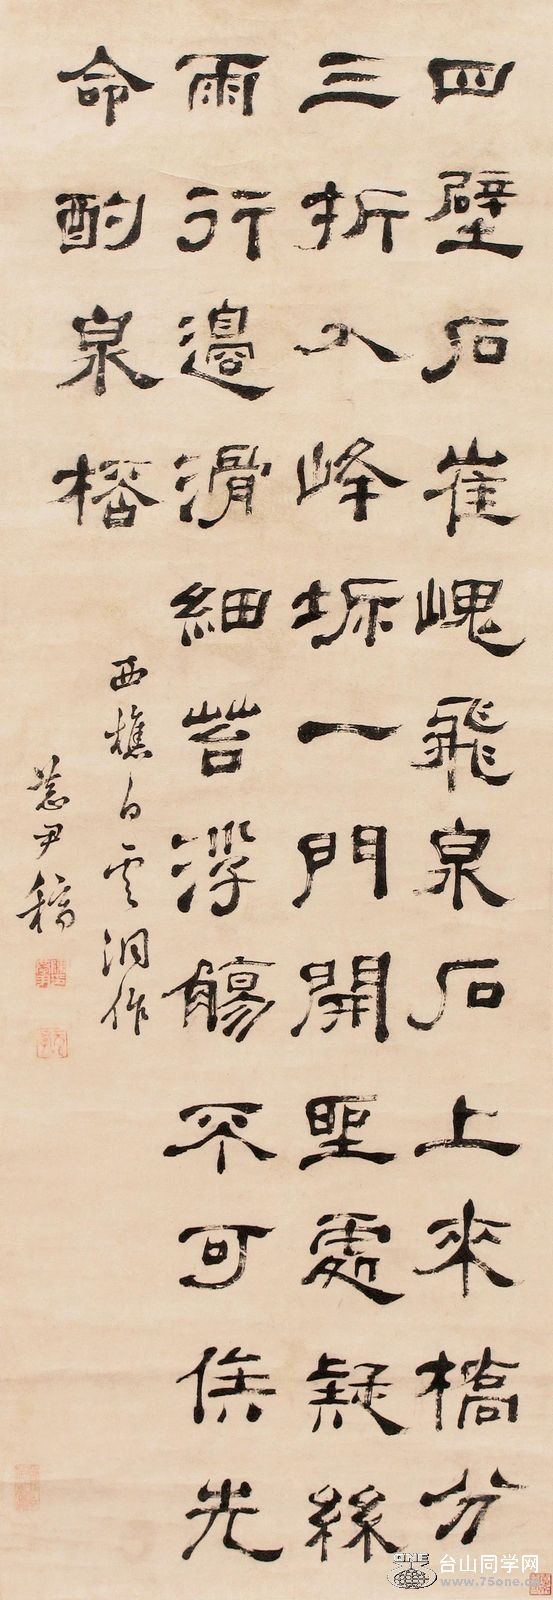 四壁石崔嵬飛泉石上來橋分
三折入峰坼一門開望處疑絲
雨行邊滑細苔浮觴不可俟先
命酌泉桮
西樵白雲洞作
尹稿
ONE
台山同学网
www.75one.cn